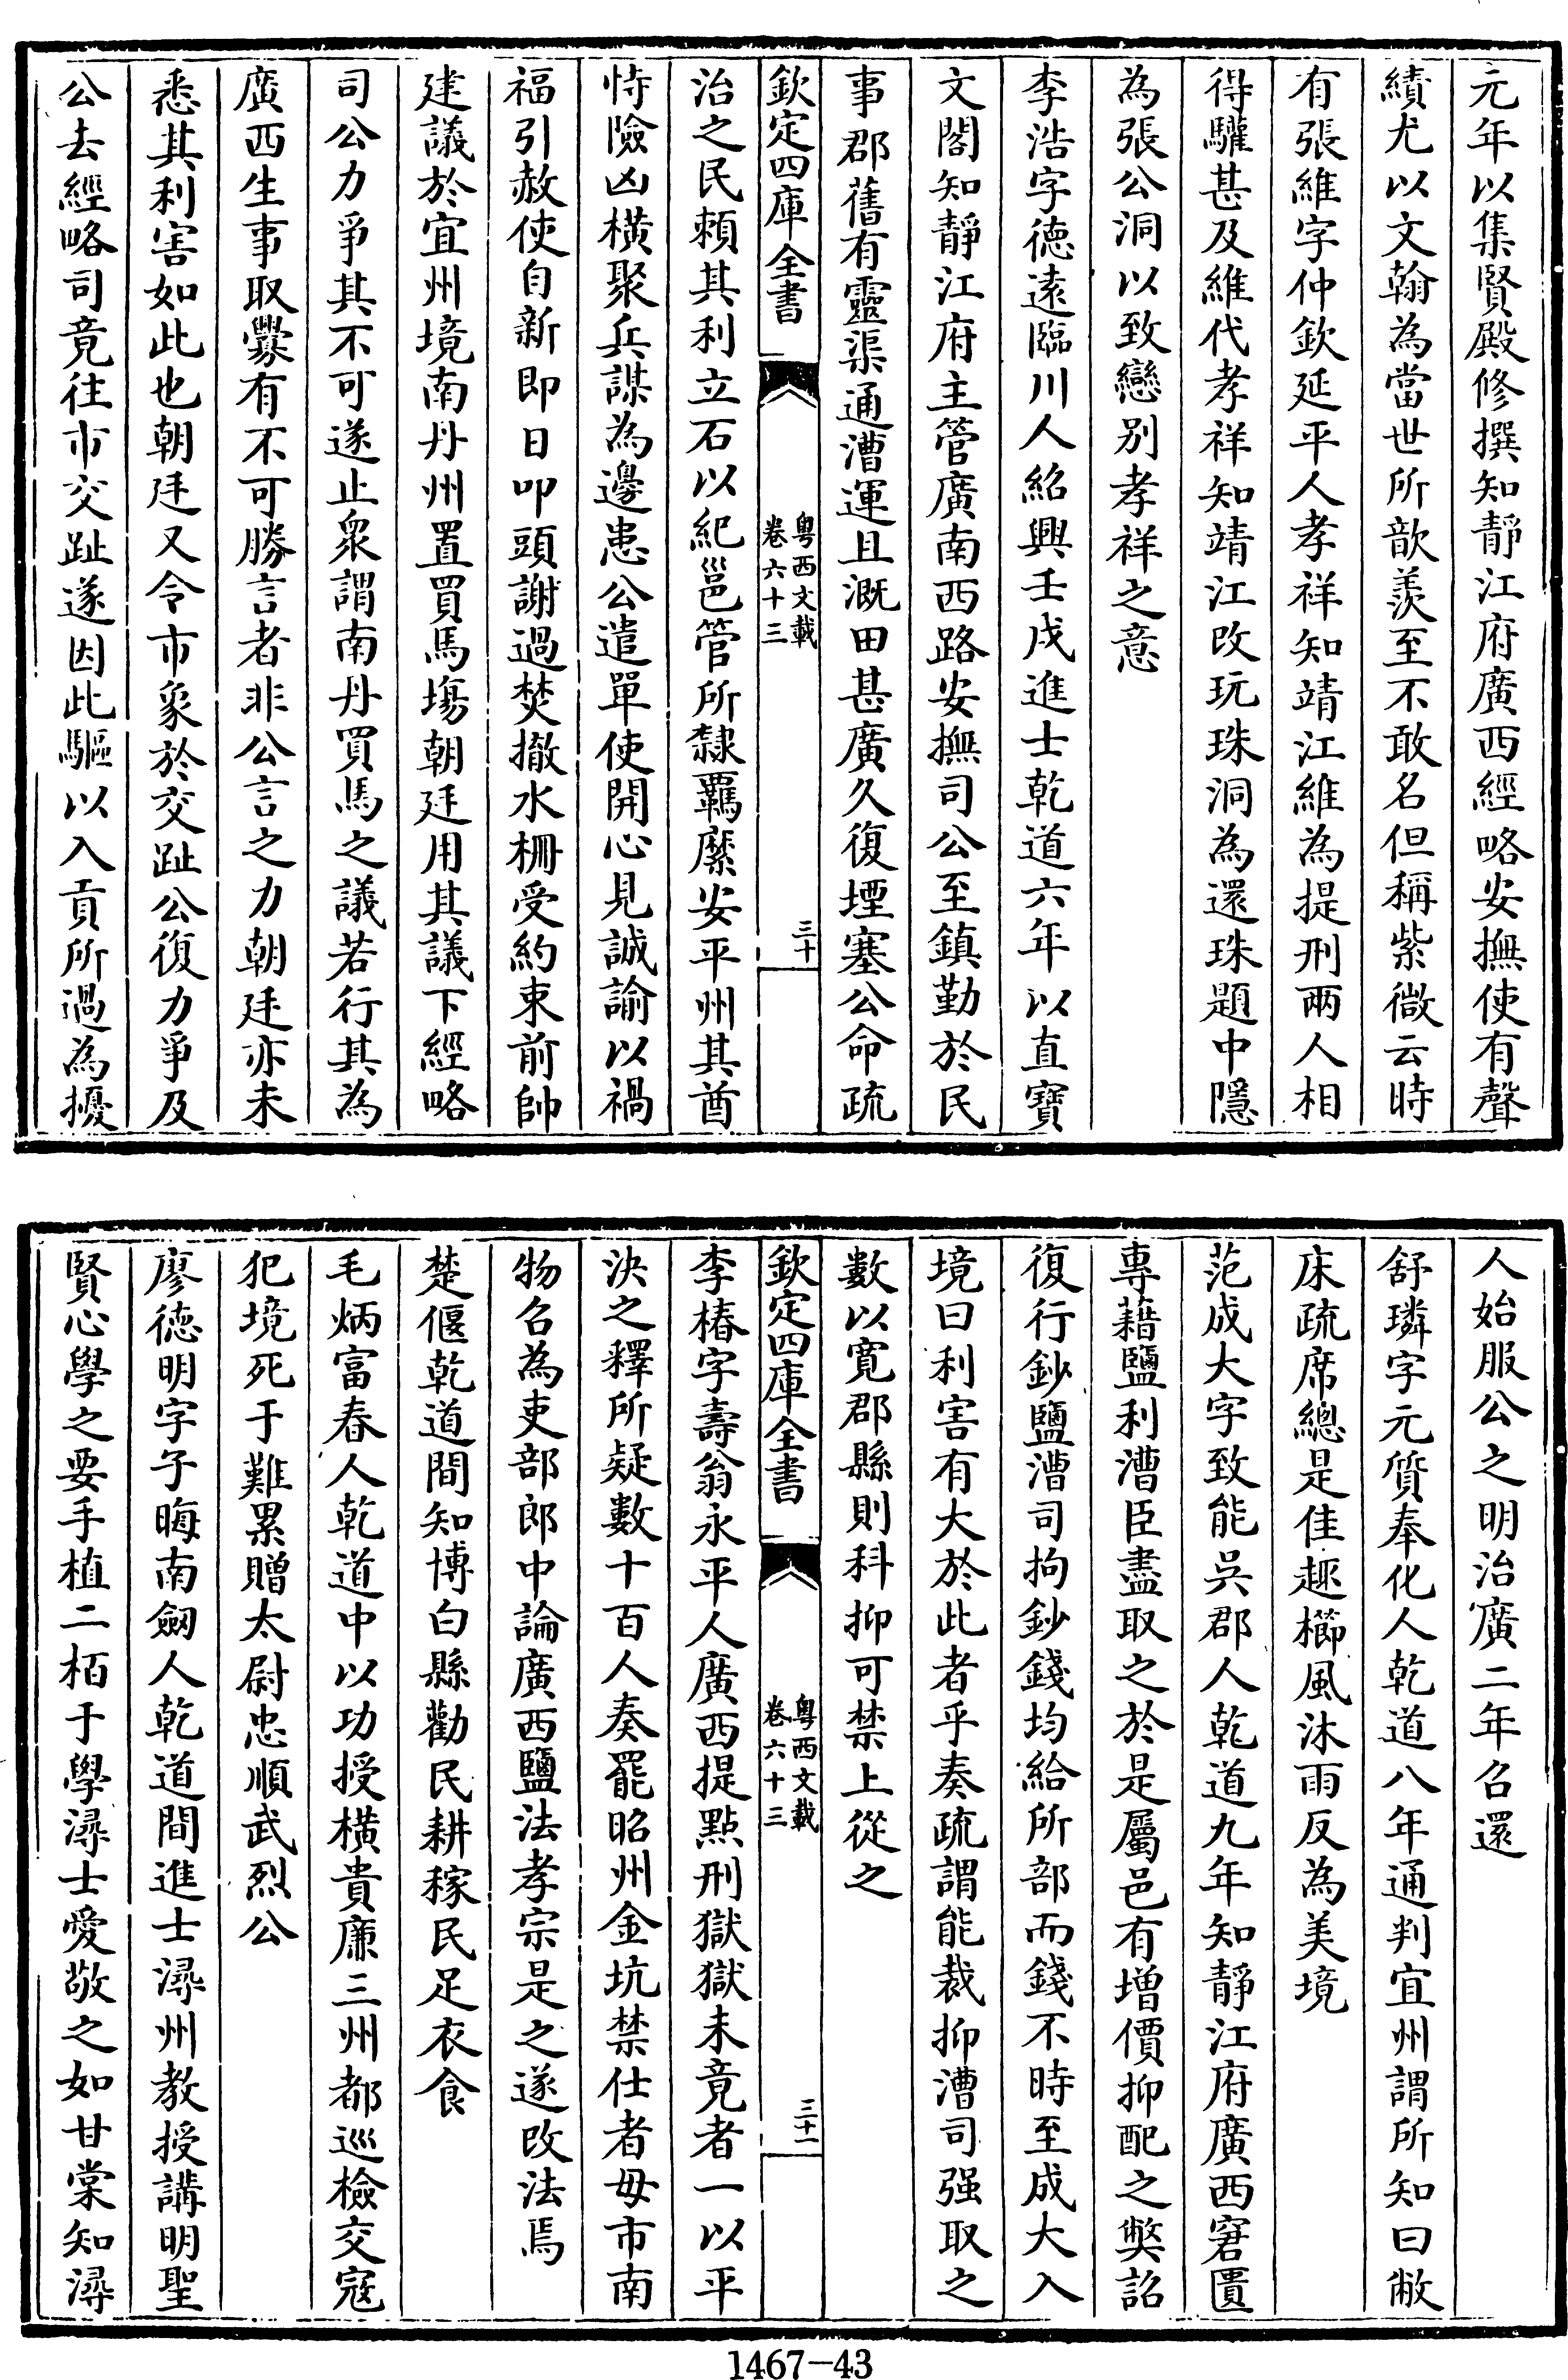 元年以集賢殿修撰知靜江府廣西經略安撫使有聲
績尤以文翰為當世所歆羨至不敢名但稱紫微云時
有張維字仲欽延平人孝祥知靖江維為提刑兩人相
得驩甚及維代孝祥知靖江改玩珠洞為還珠題中隱
為張公洞以致戀別孝祥之意
李浩字德遠臨川人紹興壬戌進士乾道六年以直寶
文閣知靜江府主管廣南西路安撫司公至鎮勤於民
事郡舊有靈渠通漕運且溉田甚廣久復堙塞公命疏
欽定四庫全書
粤西文載
卷六十三
三十
治之民賴其利立石以紀邕管所隸羈縻安平州其酋
恃險凶橫聚兵謀為邊患公遣單使開心見誠諭以禍
福引赦使自新即日叩頭謝過焚撤水栅受約束前帥
建議於宜州境南丹州置買馬塲朝廷用其議下經略
司公力爭其不可遂止衆謂南丹買馬之議若行其為
廣西生事取釁有不可勝言者非公言之力朝廷亦未
悉其利害如此也朝廷又令市象於交趾公復力爭及
公去經略司竟往市交趾遂因此驅以入貢所過為擾
人始服公之明治廣二年召還
舒璘字元質奉化人乾道八年通判宜州謂所知曰敝
床疏席總是佳趣櫛風沐雨反為美境
范成大字致能吳郡人乾道九年知靜江府廣西窘匱
專藉鹽利漕臣盡取之於是屬邑有增價抑配之弊詔
復行鈔鹽漕司拘鈔錢均給所部而錢不時至成大入
境曰利害有大於此者乎奏疏謂能裁抑漕司强取之
數以寛郡縣則科抑可禁上從之
欽定四庫全書
粤西文載
卷六十三
三十一
李椿字壽翁永平人廣西提點刑獄獄未竟者一以平
決之釋所疑數十百人奏罷昭州金坑禁仕者毋市南
物召為吏部郎中論廣西鹽法孝宗是之遂改法焉
楚偃乾道間知博白縣勸民耕稼民足衣食
毛炳富春人乾道中以功授横貴廉三州都巡檢交寇
犯境死于難累贈太尉忠順武烈公
廖德明字子晦南劒人乾道間進士潯州教授講明聖
賢心學之要手植二栢于學潯士愛敬之如甘棠知潯
1467-43